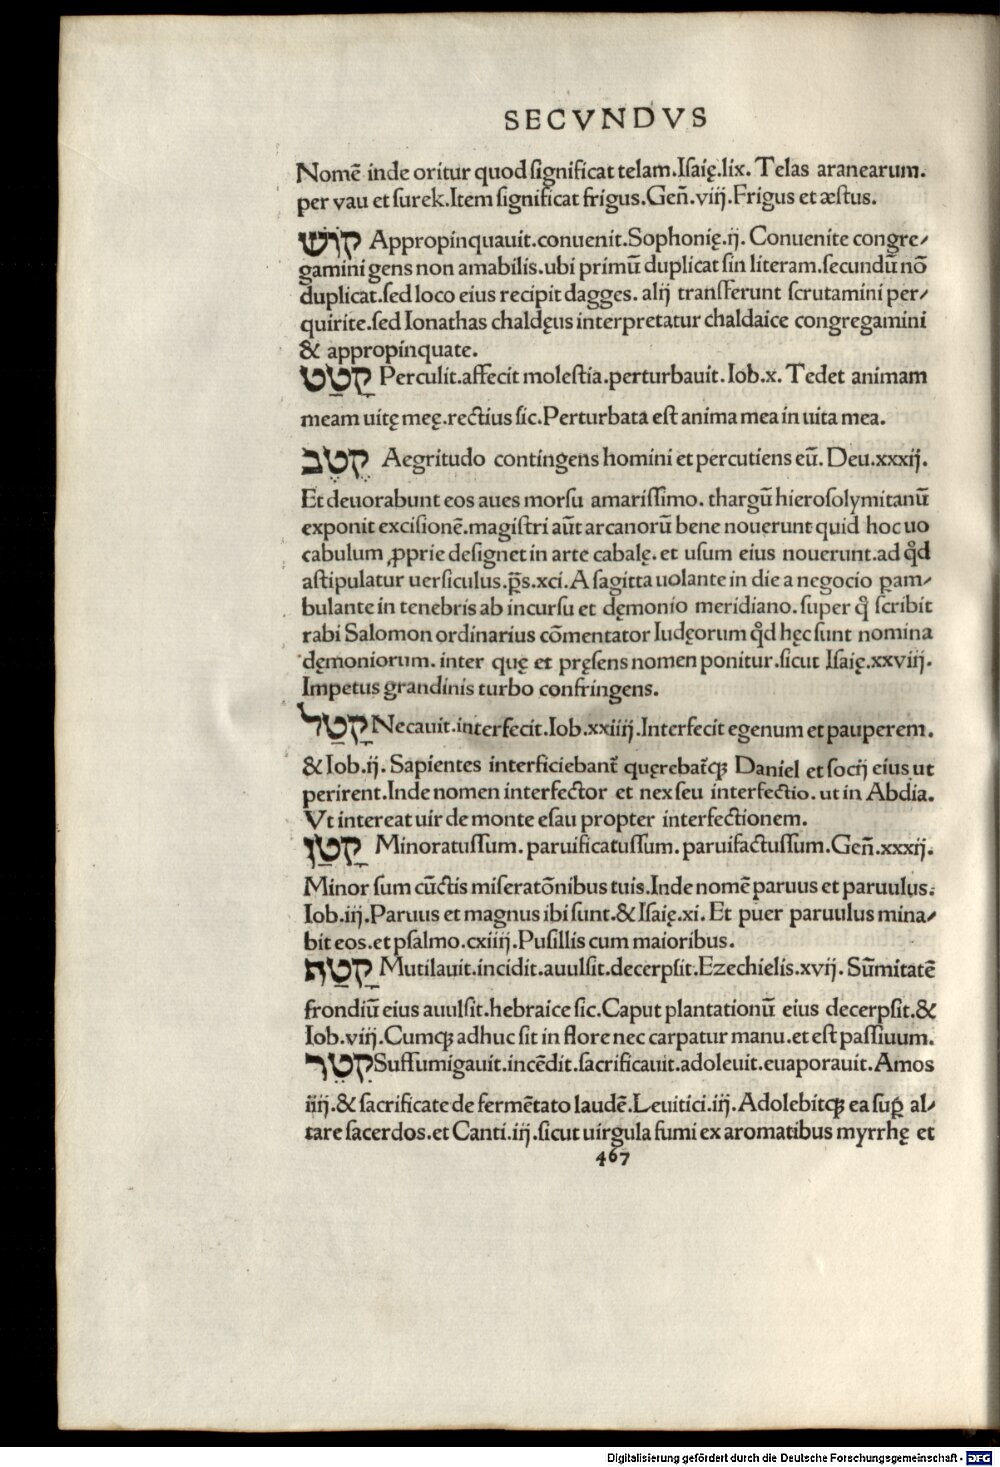 SECVNDVS
Nomē inde oritur quod significat telam.Isaię.lix. Telas aranearum.
per vau et surek.Item significat frigus.Gen̄.viij.Frigus et æstus.
קוֹשׁ Appropinquauit.conuenit.Sophonię.ij. Conuenite congre/
gamini gens non amabilis.ubi primū duplicat sin literam.secundū nō
duplicat.sed loco eius recipit dagges. alij transferunt scrutamini per/
quirite.sed Ionathas chaldęus interpretatur chaldaice congregamini
& appropinquate.
קָטַט Perculit.affecit molestia.perturbauit.Iob.x. Tedet animam
meam uitę meę.rectius sic.Perturbata est anima mea in uita mea.
קֶטֶב Aegritudo contingens homini et percutiens eū. Deu.xxxij.
Et deuorabunt eos aues morsu amarissimo. thargū hierosolymitanū
exponit excisionē.magistri aūt arcanorū bene nouerunt quid hoc uo
cabulum ꝓprie designet in arte cabalę. et usum eius nouerunt.ad qd̉
astipulatur uersiculus.p̄s.xci.A sagitta uolante in die a negocio ꝑam/
bulante in tenebris ab incursu et dęmonio meridiano. super q̉ scribit
rabi Salomon ordinarius cōmentator Iudęorum qd̉ hęc sunt nomina
dęmoniorum. inter quę et pręsens nomen ponitur.sicut Isaię.xxviij.
Impetus grandinis turbo confringens.
קָטַל Necauit.interfecit.Iob.xxiiij.Interfecit egenum et pauperem.
& Iob.ij. Sapientes interficiebant̄ quęrebat̄qꝫ Daniel et socij eius ut
perirent.Inde nomen interfector et nex seu interfectio. ut in Abdia.
Vt intereat uir de monte esau propter interfectionem.
קָטַן Minoratussum. paruificatussum. paruifactussum.Gen̄.xxxij.
Minor sum cūctis miseratōnibus tuis.Inde nomē paruus et paruulus.
Iob.iij.Paruus et magnus ibi sunt.& Isaię.xi. Et puer paruulus mina/
bit eos.et psalmo.cxiiij.Pusillis cum maioribus.
קָטַף Mutilauit.incidit.auulsit.decerpsit.Ezechielis.xvij. Sūmitatē
frondiū eius auulsit.hebraice sic.Caput plantationū eius decerpsit.&
Iob.viij.Cumqꝫ adhuc sit in flore nec carpatur manu.et est passiuum.
קִטֵּר Suffumigauit.incēdit.sacrificauit.adoleuit.euaporauit.Amos
iiij.& sacrificate de fermētato laudē.Leuitici.iij.Adolebitqꝫ ea suꝑ al/
tare sacerdos.et Canti.iij.sicut uirgula fumi ex aromatibus myrrhę et
467
Digitalisierung gefördert durch die Deutsche Forschungsgemeinschaft - DFG